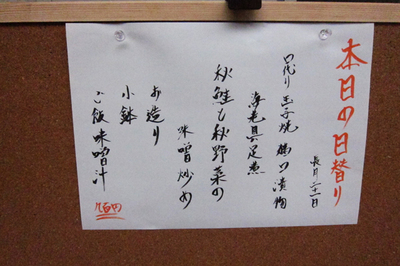 本日の日替り
長月二十一日
口代り 玉子焼 鴨ロース 漬物
海老具足煮
秋鮭と秋野菜の
味噌炒め
お造り
小鉢
ご飯 味噌汁
九百円